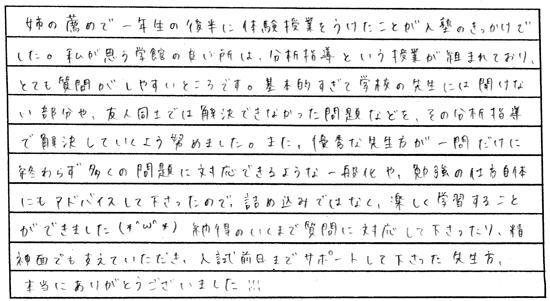 姉の薦めで一年生の後半に体験授業をうけたことが入塾のきっかけで
した。私が思う学館の良い所は、分析指導という授業が組まれており、
とても質問がしやすいところです。基本的すぎて学校の先生には聞けな
い部分や、友人同士では解決できなかった問題などを、その分析指導
で解決していくよう努めました。また、優秀な先生方が一問だけに
終わらず多くの問題に対応できるような一般化や、勉強の仕方自体
にもアドバイスして下さったので、詰め込みではなく、楽しく学習すること
ができました(*^ω^*) 納得のいくまで質問に対応して下さったり、精
神面でも支えていただき、入試前日までサポートして下さった先生方、
本当にありがとうございました!!!